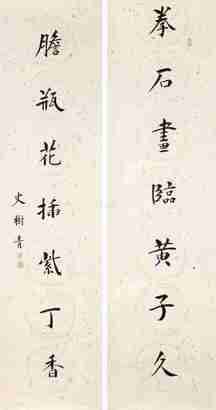 拳石畫臨黃子久
膽瓶花插紫丁香
史樹青